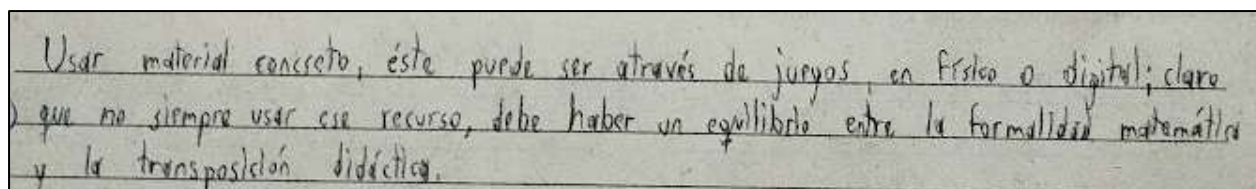 Usar material concreto, éste puede ser através de juegos, en físico o digital; claro
que no siempre usar ese recurso, debe haber un equilibrio entre la formalidad matemática
y la transposición didáctica.